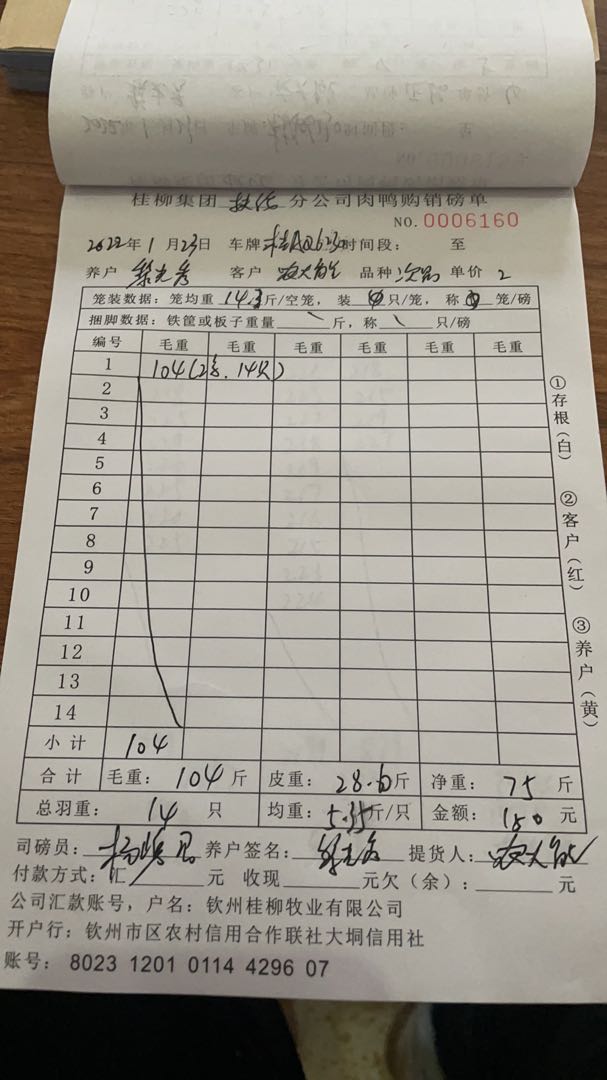 桂柳集团 扶优 分公司肉鸭购销磅单
NO.0006160
2022年1月23日 车牌 桂AQ623 时间段： 至
养户 客户 农大能 品种 次品 单价 2
笼装数据：笼均重 14.3 斤/空笼，装 只/笼，称 笼/磅
捆脚数据：铁筐或板子重量 \ 斤，称 \ 只/磅
编号 毛重 毛重 毛重 毛重 毛重
1 104(2笼.14只)
2
3
4
5
6
7
8
9
10
11
12
13
14
小计 104
合计 毛重：104斤 皮重：28.6斤 净重：75斤
总羽重：14只 均重：5.35斤/只 金额：150元
①存根(白)
②客户(红)
③养户(黄)
司磅员： 养户签名： 提货人：农大能
付款方式：汇 元 收现 元欠（余）： 元
公司汇款账号，户名：钦州桂柳牧业有限公司
开户行：钦州市区农村信用合作联社大垌信用社
账号：8023 1201 0114 4296 07